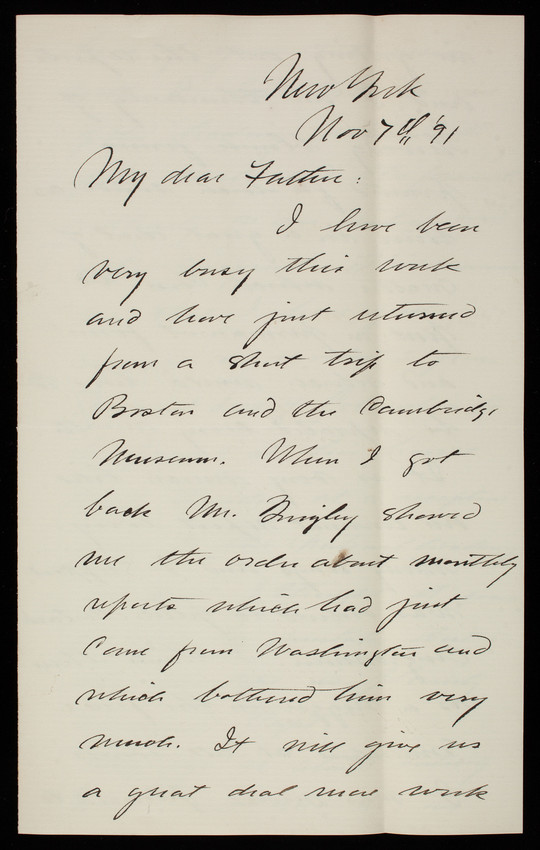 New York
Nov 7th '91
My dear Father:
I have been
very busy this week
and have just returned
from a short trip to
Boston and the Cambridge
Museum. When I got
back Mr. showed
me the order about monthly
reports which had just
come from Washington and
which bothered him very
much. It will give us
a great deal more work